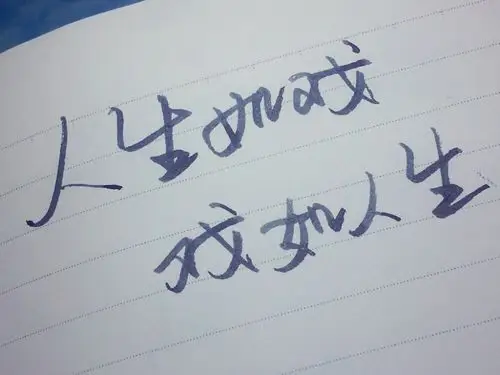 人生如戏
戏如人生